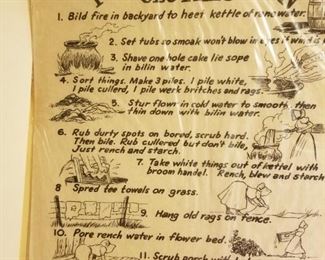 1. Bild fire in backyard to heet kettle of rane water.
2. Set tubs so smoak won't blow in eyes if wind is
3. Shave one hole cake lie sope
in bilin water.
4. Sort things. Make 3 piles. 1 pile white,
1 pile cullerd, 1 pile werk britches and rags.
5. Stur flown in cold water to smooth then
thin down with bilin water.
6. Rub durty spots on bored, scrub hard.
Then bile. Rub cullered but don't bile,
Just rench and starch.
7. Take white things out of kettel with
broom handel. Rench, blew and starch
8 Spred tee towels on grass.
9. Hang old rags on fence.
10. Pore rench water in flower bed.
11. Scrub porch with